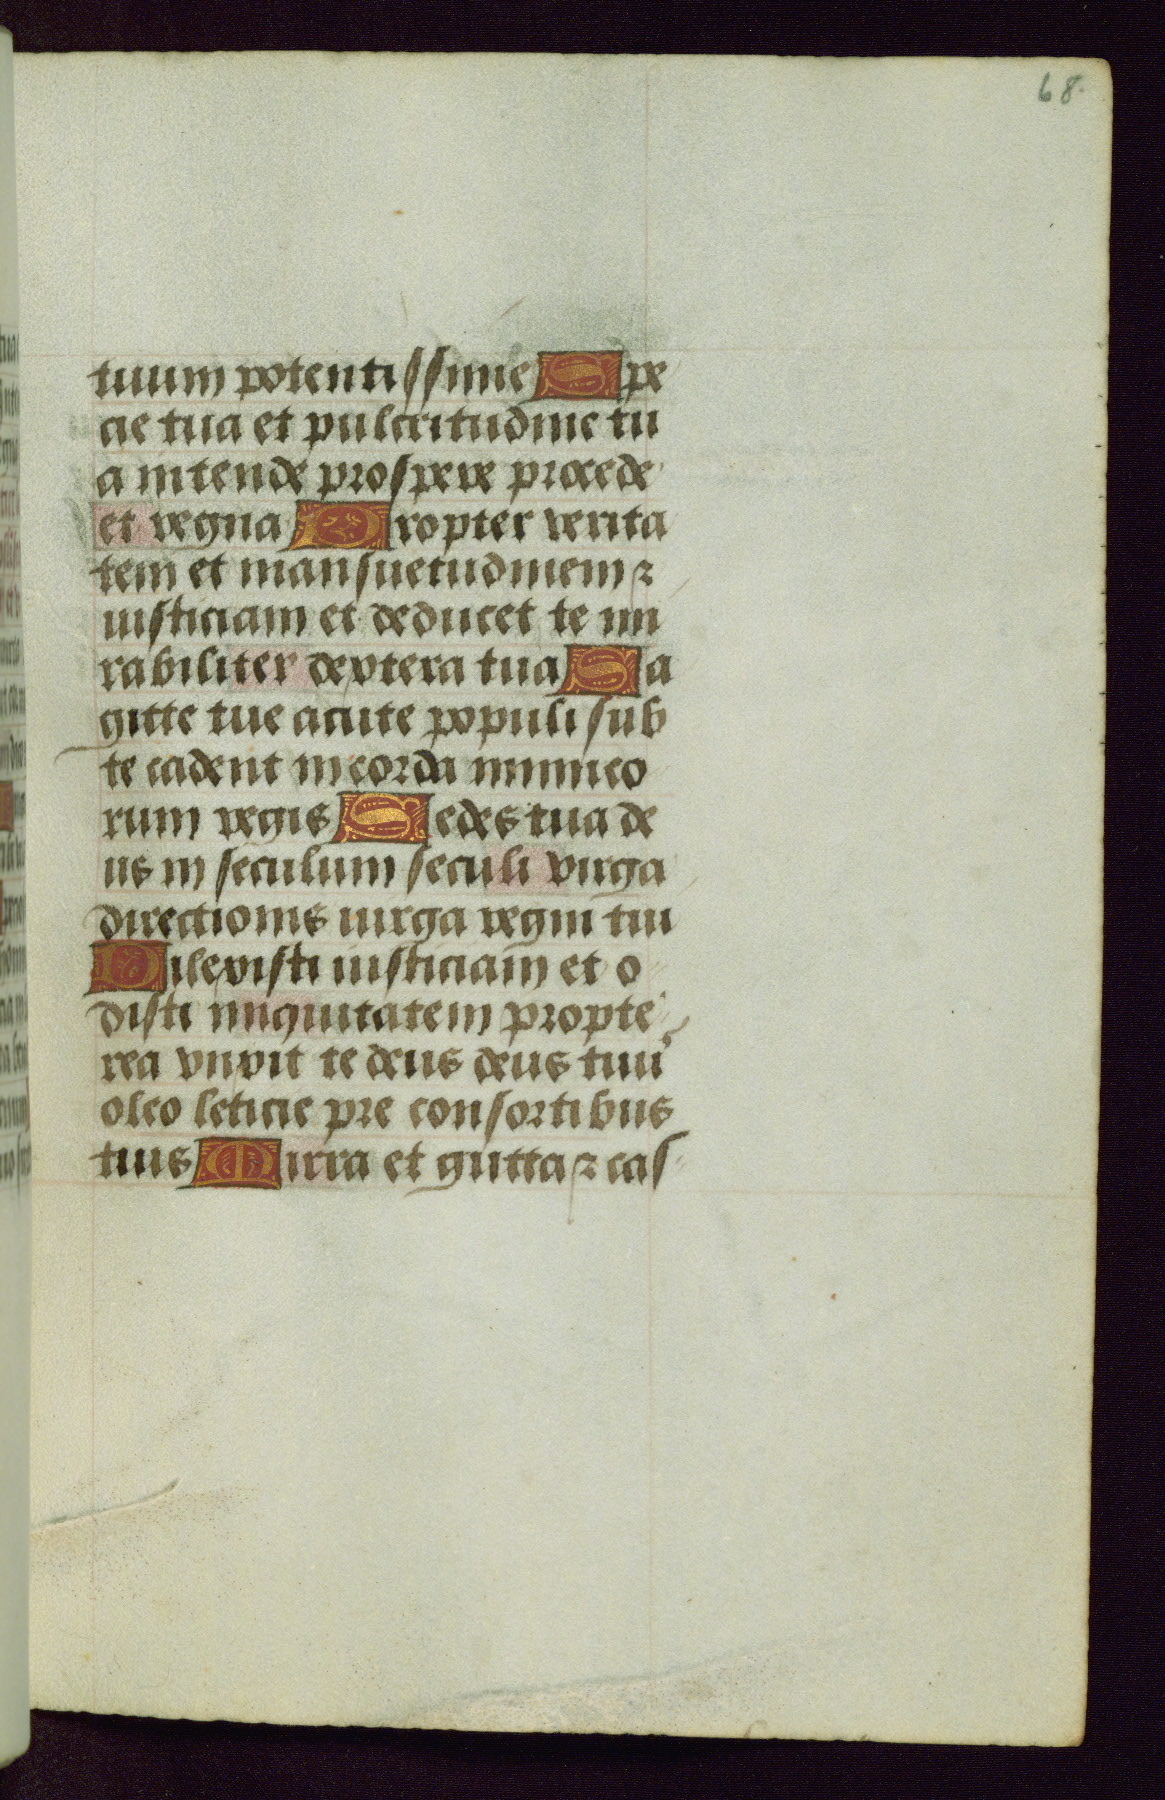 68.
tuum potentissime Spe
cie tua et pulcritudine tu
a intende prospere procede
et regna Propter verita
tem et mansuetudinem ꝛ
iusticiam et deducet te mi
rabiliter dextera tua Sa
gitte tue acute populi sub
te cadent in corda inimico
rum regis Sedes tua de
us in seculum seculi virga
directionis uirga regni tui
Dilexisti iusticiam et o
disti iniquitatem propte
rea vnxit te deus deus tuuꝰ
oleo leticie pre consortibus
tuis Mirra et gutta ꝛ cas